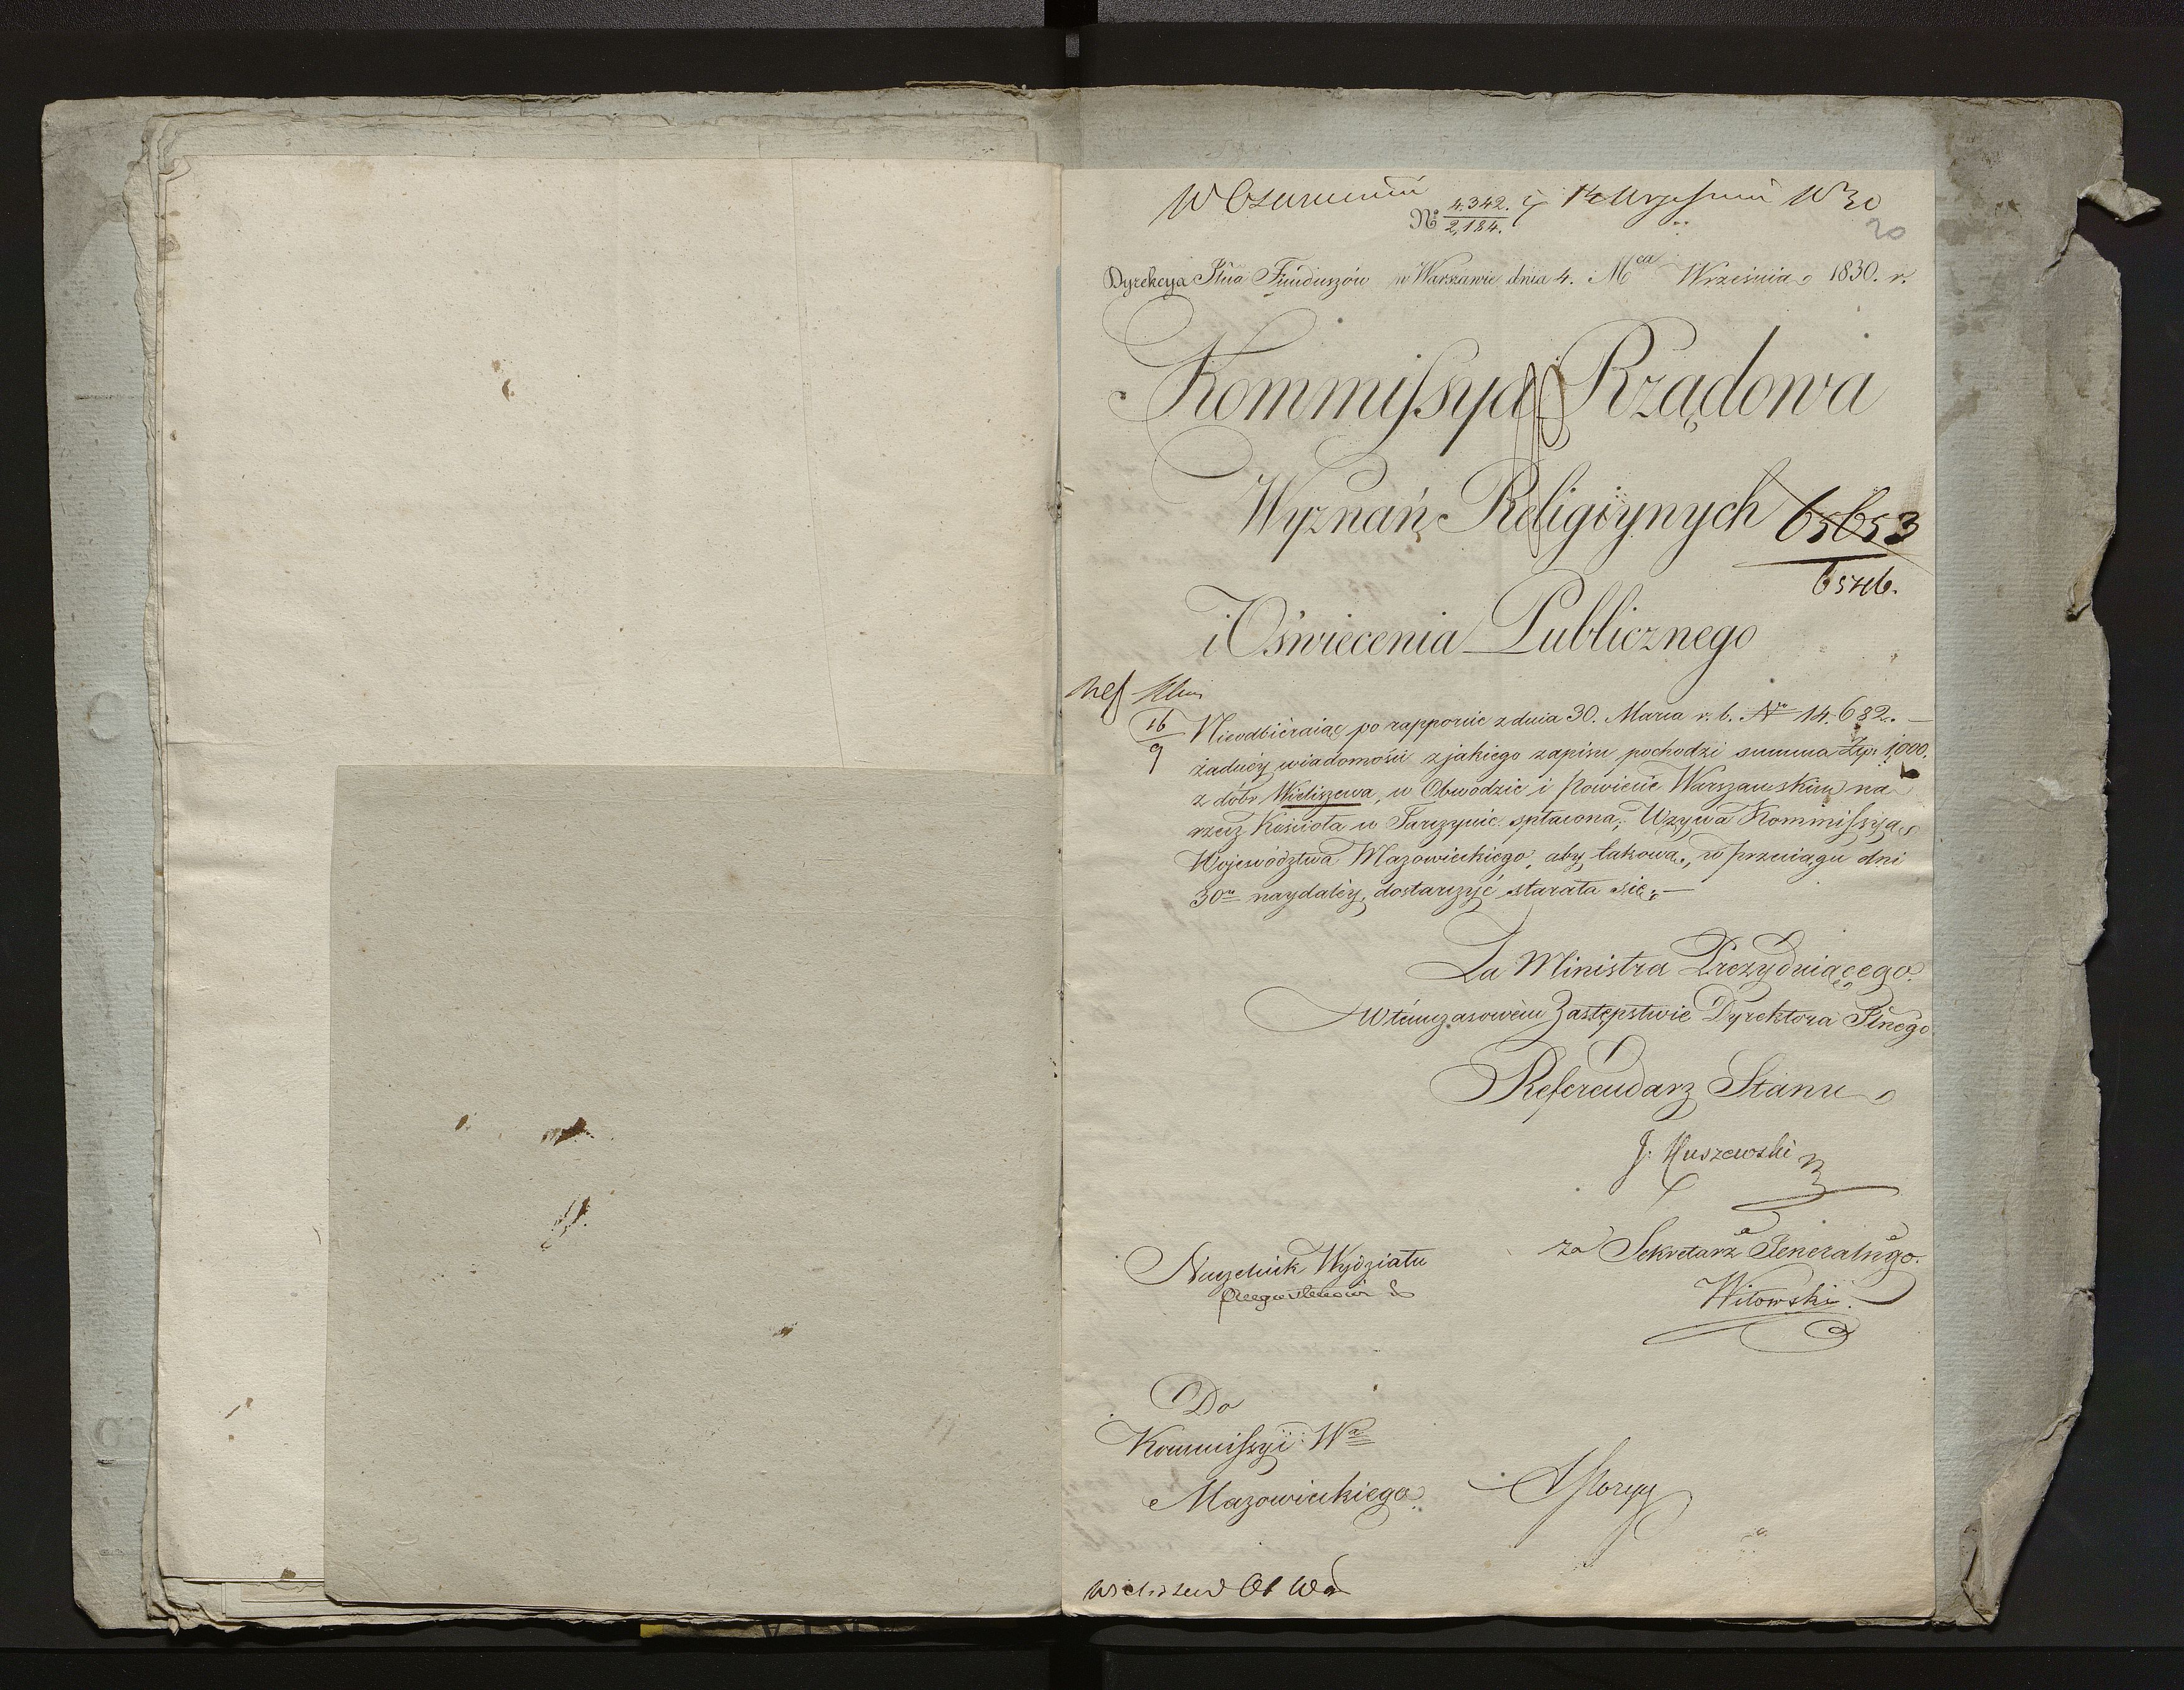 Września 1830
№ 4.342. / 2,184.
20
Dyrekcya Flna Funduszów w Warszawie dnia 4. Mca Września 1830. r.
Kommissya Rządowa
Wyznań Religiynych
65653
i Oświecenia Publicznego
16/9
Nieodbiéraiąc po rapporcie z dnia 30. Marca r. b. Nro 14.682. —
żadnéy wiadomości z jakiego zapisu pochodzi summa Złp. 1000.
z dóbr Wieliszewa, w Obwodzie i Powiecie Warszawskim na
rzecz Kościoła w Tarczynie spłacona; Wzywa Kommissyą
Województwa Mazowieckiego, aby takową, w przeciągu dni
30tu naydaléy, dostarczyć starała się. —
Za Ministra Prezyduiącego
w témczasowém Zastępstwie Dyrektora Flnego
Referendarz Stanu
J. Huszewski
za Sekretarza Jeneralnego.
Witowski
Naczelnik Wydziału
Do
Kommissyi Wa
Mazowieckiego
Wieliszew Ob Wa